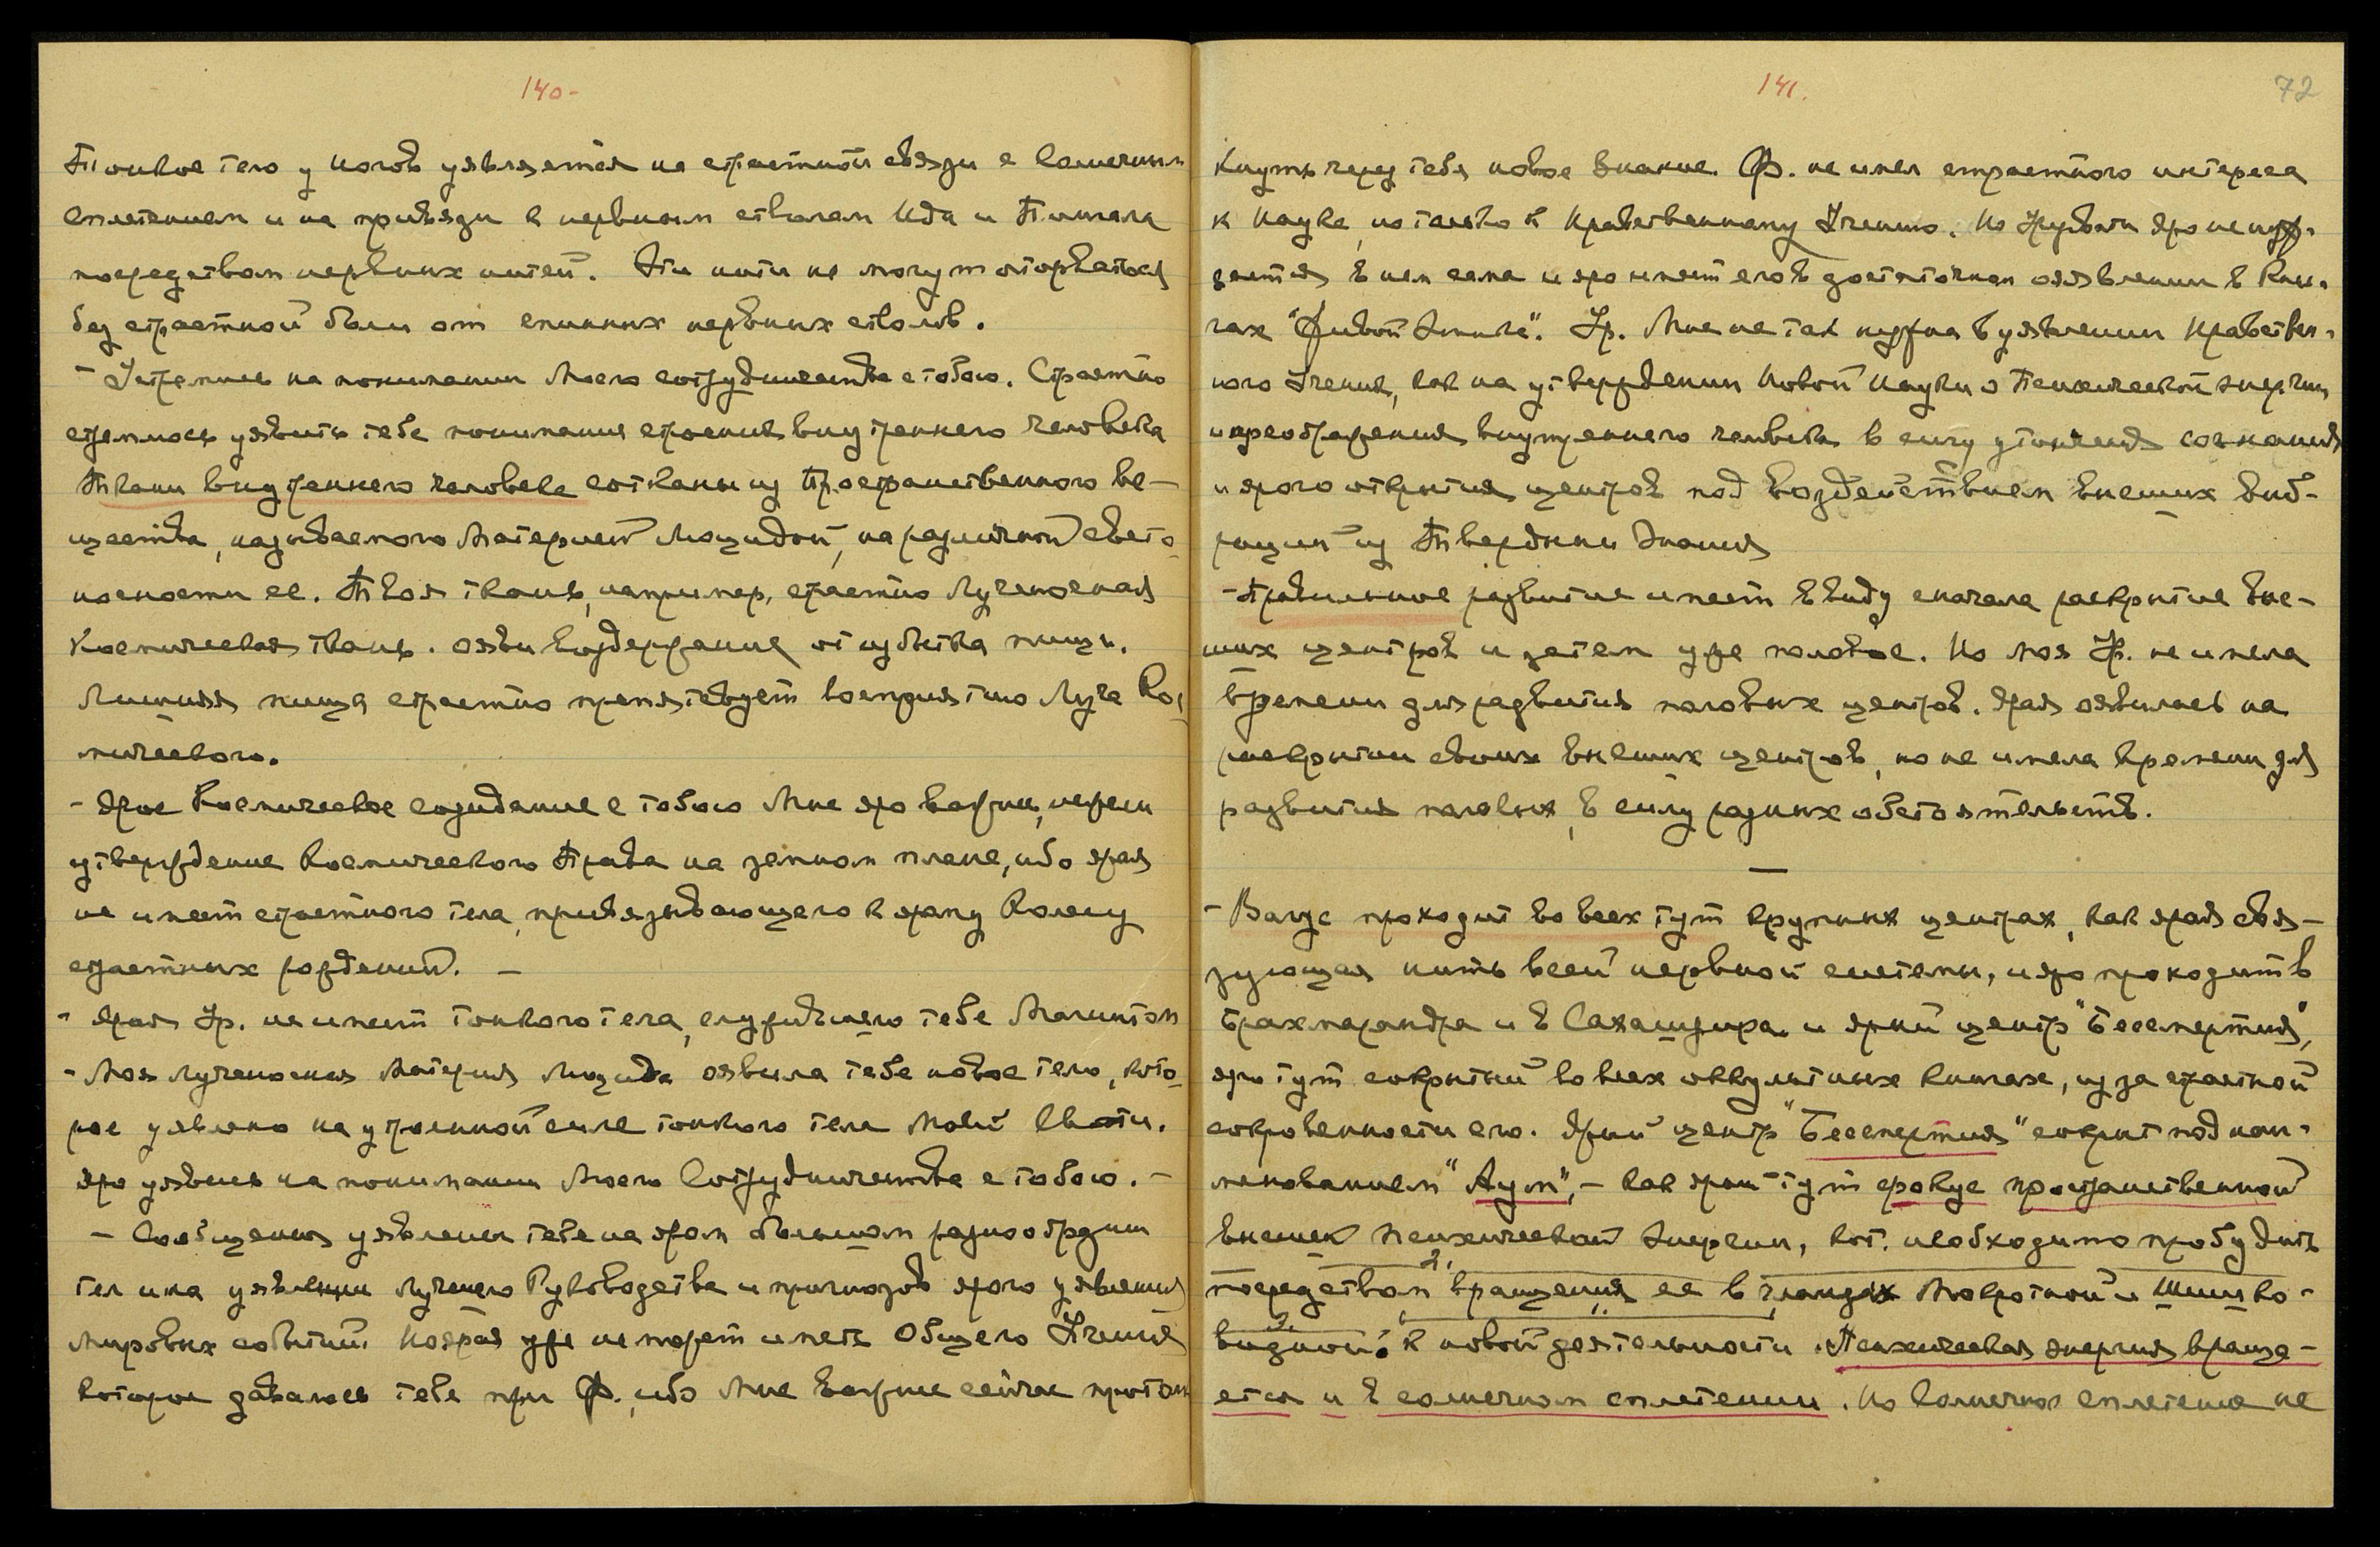 140-
Тонкое тело у ногов уявляется на страстной связи с Солнечным
сплетением и на привязи к нервным стволам Ида и Пингала
посредством нервных нитей. Эти нити не могут оторваться
без страстной боли от спинных нервных стволов.
- Устремись на понимании Моего сотрудничества с тобою. Страстно
стремлюсь уявить тебе понимание строения внутреннего человека
Ткани внутреннего человека сотканы из Пространственного ве-
щества, называемого Материей Люцидой, на различной свето-
носности ее. Твоя ткань, например, страстно Лученосная
Космическая ткань. Ояви воздержание от избытка пищи.
Лишняя пища страстно препятствует восприятию Луча Кос-
мического.
- Ярое Космическое созидание с тобою Мне яро важнее, нежели
утверждение Космического Права на земном плане, ибо ярая
не имеет страстного тела, привязывающего к ярому Колесу
страстных рождений. -
- Ярая Ур. не имеет тонкого тела, служившего тебе Магнитом
- Моя лученосная Материя Люцида оявила тебе новое тело, кото-
рое уявлено на утроенной силе тонкого тела Моей Свати.
Яро уявись на понимании Моего Сотрудничества с тобою. -
- Сообщения уявлены тебе на яром большом разнообразии
тел и на уявлении Лучевого Руководства и прогнозов ярого уявления
мировых событий. Но ярая уже не может иметь Общего Учения
которое давалось тебе при Ф., ибо Мне важнее сейчас протол-
141.
72
кнуть через тебя новое знание. Ф. не имел страстного интереса
к Науке, но только к Нравственному Учению. Но Урувати яро не нуж-
дается в нем сама и яро имеет его в достаточном оявлении в Кни-
гах "Живой Этики". Ур. Мне не так нужна в уявлении Нравствен-
ного Учения, как на утверждении Новой Науки о Психической энергии
и преображения внутреннего человека в силу утончения сознания
и ярого открытия центров под воздействием внешних виб-
раций из Твердыни Знания
- Правильное развитие имеет в виду сначала раскрытие вне-
шних центров и затем уже половое. Но моя Ур. не имела
времени для развития половых центров. Ярая оявилась на
раскрытии своих внешних центров, но не имела времени для
развития половых, в силу разных обстоятельств.
—
- Вагус проходит во всех тут крупных центрах, как ярая свя-
зующая нить всей нервной системы, и яро проходит в
Брахмарандра и в Сахашрара и ярый центр "Бессмертия",
яро тут сокрытый во всех оккультных книгах, из за страстной
сокровенности его. Ярый центр "Бессмертия" сокрыт под наи-
менованием "Аум", - как ярый тут фокус пространственной
внешней Психической Энергии, кот. необходимо пробудить
посредством вращения ее в гландах Мокротной и Шишко-
видной к новой деятельности. Психическая энергия враща-
ется и в солнечном сплетении. Но Солнечное сплетение не